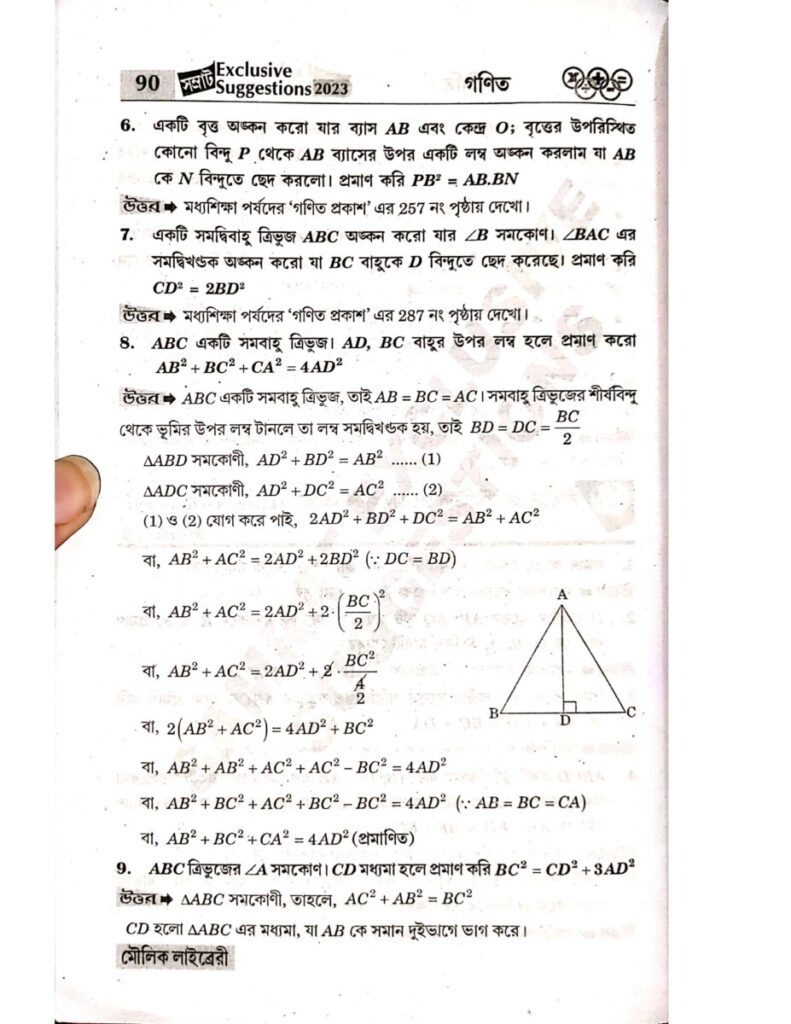 90 সম্রাট Exclusive Suggestions 2023 গণিত
6. একটি বৃত্ত অঙ্কন করো যার ব্যাস AB এবং কেন্দ্র O; বৃত্তের উপরিস্থিত
কোনো বিন্দু P থেকে AB ব্যাসের উপর একটি লম্ব অঙ্কন করলাম যা AB
কে N বিন্দুতে ছেদ করলো। প্রমাণ করি PB² = AB.BN
উত্তর ➡ মধ্যশিক্ষা পর্ষদের ‘গণিত প্রকাশ’ এর 257 নং পৃষ্ঠায় দেখো।
7. একটি সমদ্বিবাহু ত্রিভুজ ABC অঙ্কন করো যার ∠B সমকোণ। ∠BAC এর
সমদ্বিখণ্ডক অঙ্কন করো যা BC বাহুকে D বিন্দুতে ছেদ করেছে। প্রমাণ করি
CD² = 2BD²
উত্তর ➡ মধ্যশিক্ষা পর্ষদের ‘গণিত প্রকাশ’ এর 287 নং পৃষ্ঠায় দেখো।
8. ABC একটি সমবাহু ত্রিভুজ। AD, BC বাহুর উপর লম্ব হলে প্রমাণ করো
AB² + BC² + CA² = 4AD²
উত্তর ➡ ABC একটি সমবাহু ত্রিভুজ, তাই AB = BC = AC। সমবাহু ত্রিভুজের শীর্ষবিন্দু
থেকে ভূমির উপর লম্ব টানলে তা লম্ব সমদ্বিখণ্ডক হয়, তাই BD = DC = BC/2
ΔABD সমকোণী, AD² + BD² = AB² ...... (1)
ΔADC সমকোণী, AD² + DC² = AC² ...... (2)
(1) ও (2) যোগ করে পাই, 2AD² + BD² + DC² = AB² + AC²
বা, AB² + AC² = 2AD² + 2BD² (∵ DC = BD)
বা, AB² + AC² = 2AD² + 2·(BC/2)²
বা, AB² + AC² = 2AD² + 2 · BC²/4
2
বা, 2(AB² + AC²) = 4AD² + BC²
বা, AB² + AB² + AC² + AC² – BC² = 4AD²
বা, AB² + BC² + AC² + BC² – BC² = 4AD² (∵ AB = BC = CA)
বা, AB² + BC² + CA² = 4AD² (প্রমাণিত)
A
B D C
9. ABC ত্রিভুজের ∠A সমকোণ। CD মধ্যমা হলে প্রমাণ করি BC² = CD² + 3AD²
উত্তর ➡ ΔABC সমকোণী, তাহলে, AC² + AB² = BC²
CD হলো ΔABC এর মধ্যমা, যা AB কে সমান দুইভাগে ভাগ করে।
মৌলিক লাইব্রেরী